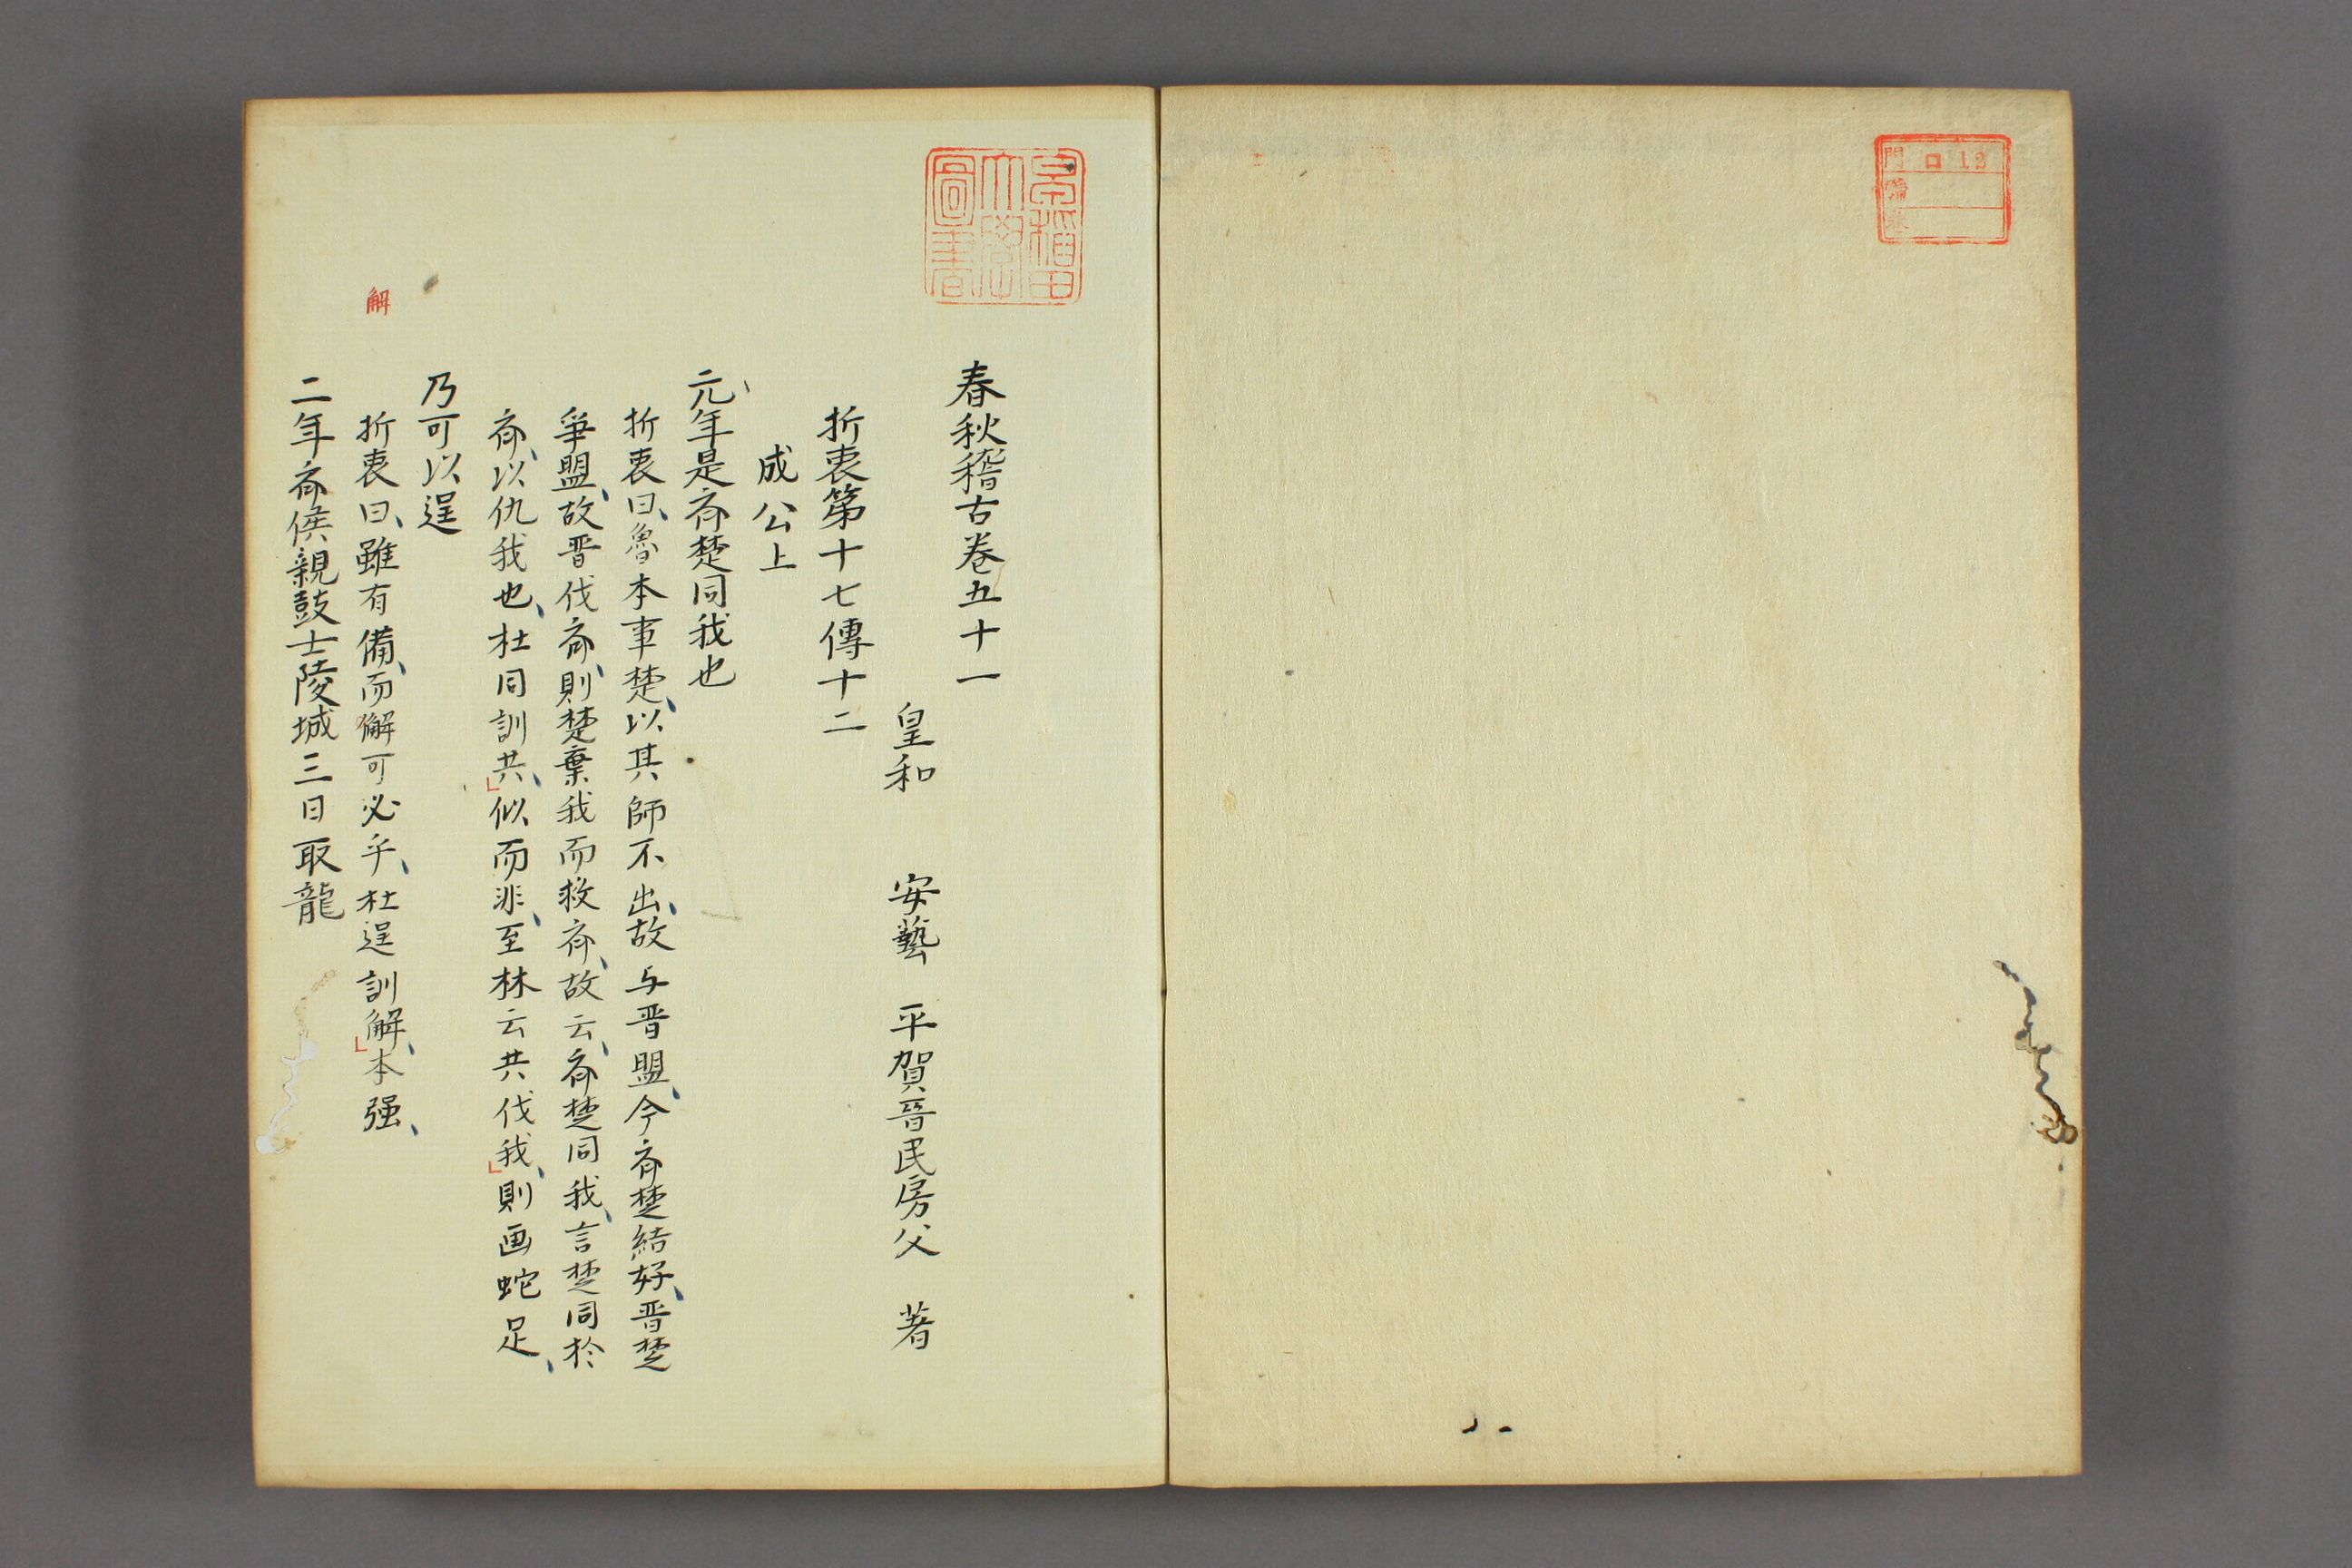 門 ロ 12
號
卷
早稲田大學圖書
春秋稽古卷五十一
皇和 安藝 平賀晉民房父 著
折衷第十七傳十二
成公上
元年是齊楚同我也
折衷曰、魯本事楚、以其師不出、故与晋盟、今齊楚結好、晋楚
爭盟、故晋伐齊、則楚棄我而救齊、故云、齊楚同我、言楚同於
齊、以仇我也、杜同訓共、似而非、至林云共伐我、則画蛇足、
乃可以逞
解
折衷曰、雖有備、而懈可必乎、杜逞訓解、本强、
二年齊侯親鼓士陵城三日取龍